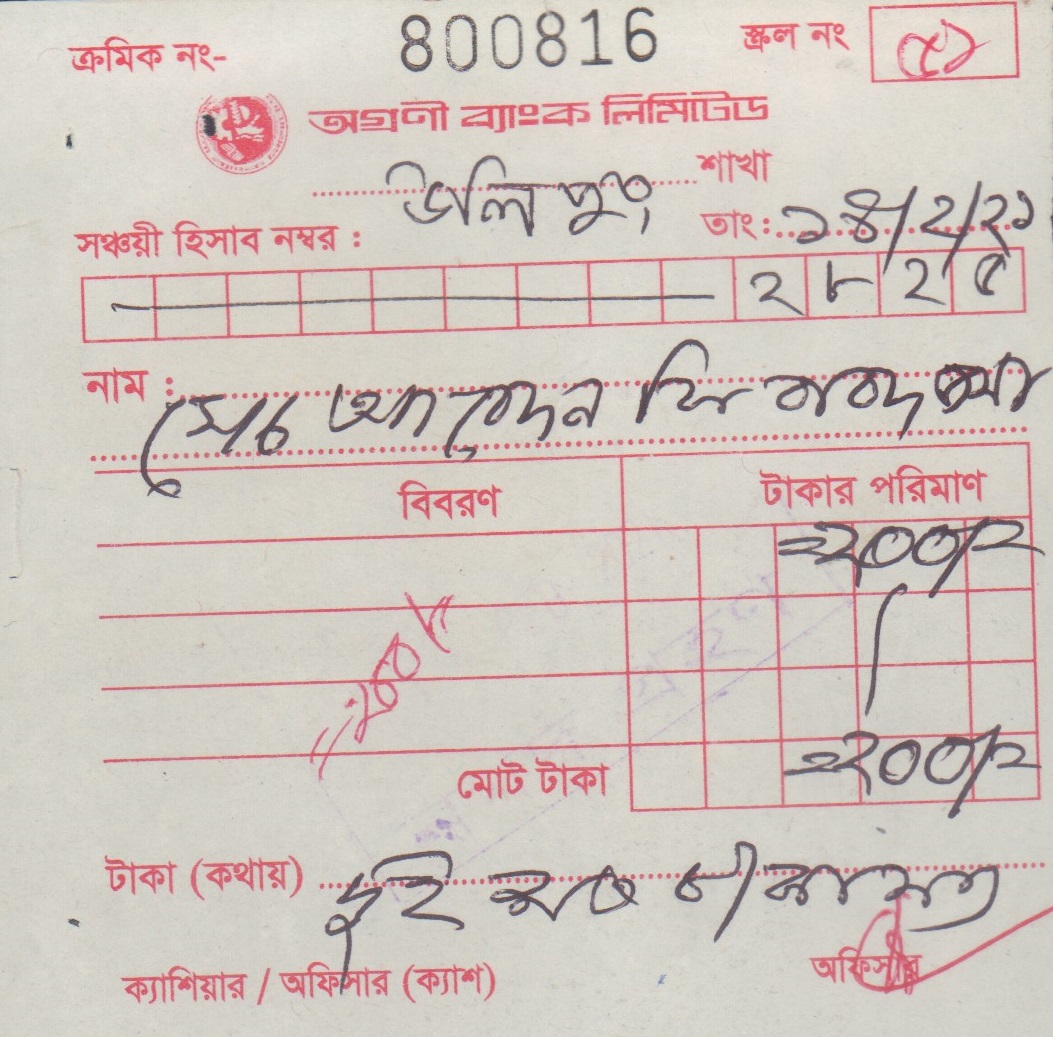 ক্রমিক নং- 800816 স্ক্রল নং ৫১
অগ্রণী ব্যাংক লিমিটেড
উলিপুর শাখা
সঞ্চয়ী হিসাব নম্বর : তাং: ১৪/২/২১
২ ৮ ২ ৫
নাম : সেচ আবেদন ফি বাবদ জমা
বিবরণ টাকার পরিমাণ
=২০০/=
=২০০/=
মোট টাকা =২০০/=
টাকা (কথায়) দুই শত টাকা মাত্র
ক্যাশিয়ার / অফিসার (ক্যাশ) অফিসার